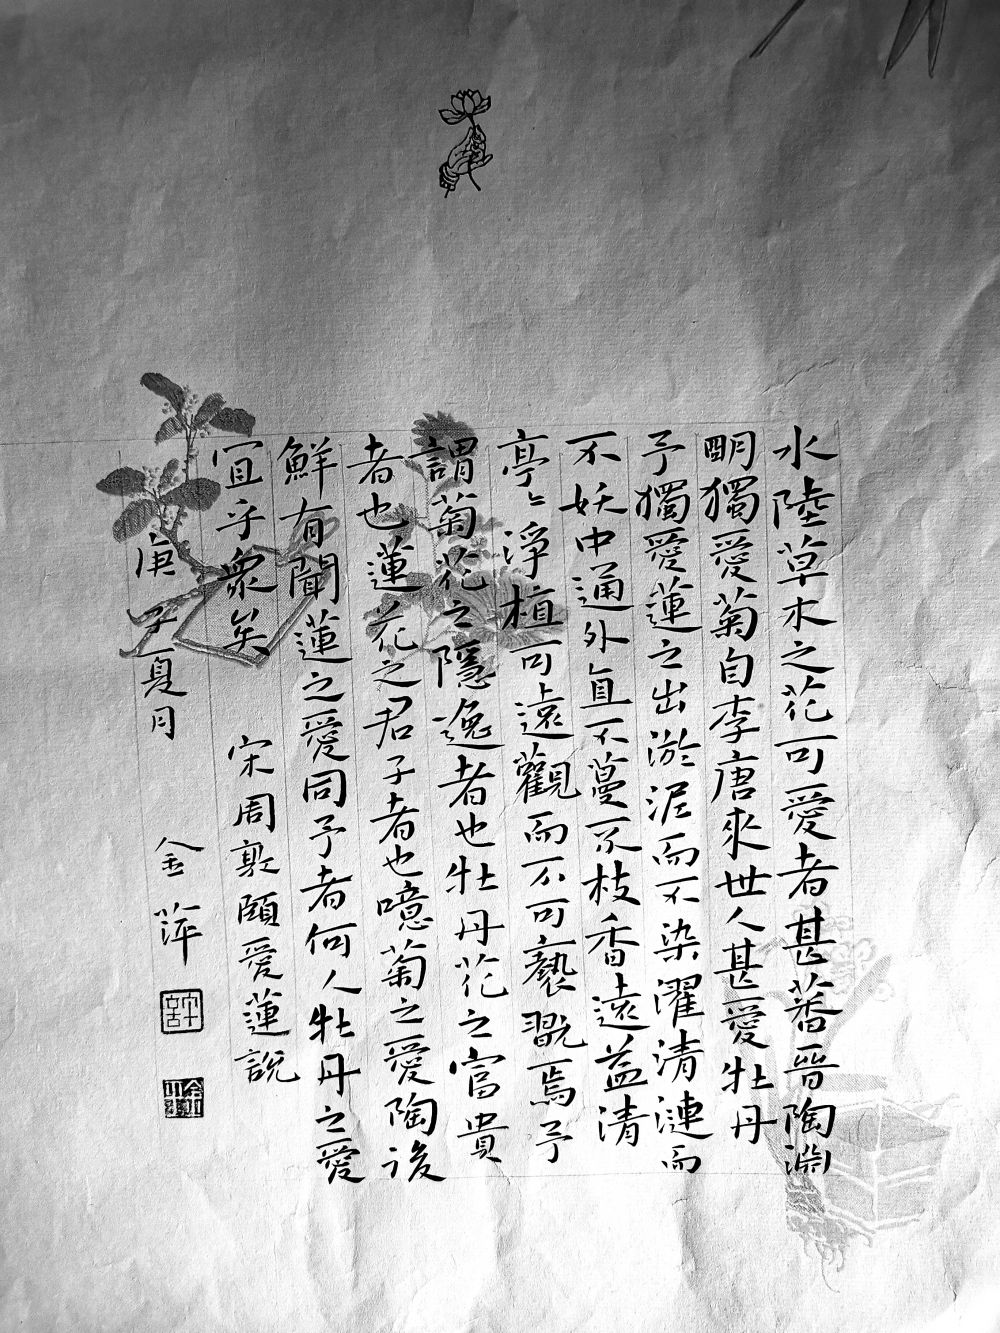 水陸草木之花可愛者甚蕃晉陶淵
明獨愛菊自李唐來世人甚愛牡丹
予獨愛蓮之出淤泥而不染濯清漣而
不妖中通外直不蔓不枝香遠益清
亭〻淨植可遠觀而不可褻翫焉予
謂菊花之隱逸者也牡丹花之富貴
者也蓮花之君子者也噫菊之愛陶後
鮮有聞蓮之愛同予者何人牡丹之愛
宜乎衆矣
宋周敦頤愛蓮說
庚子夏月
金萍